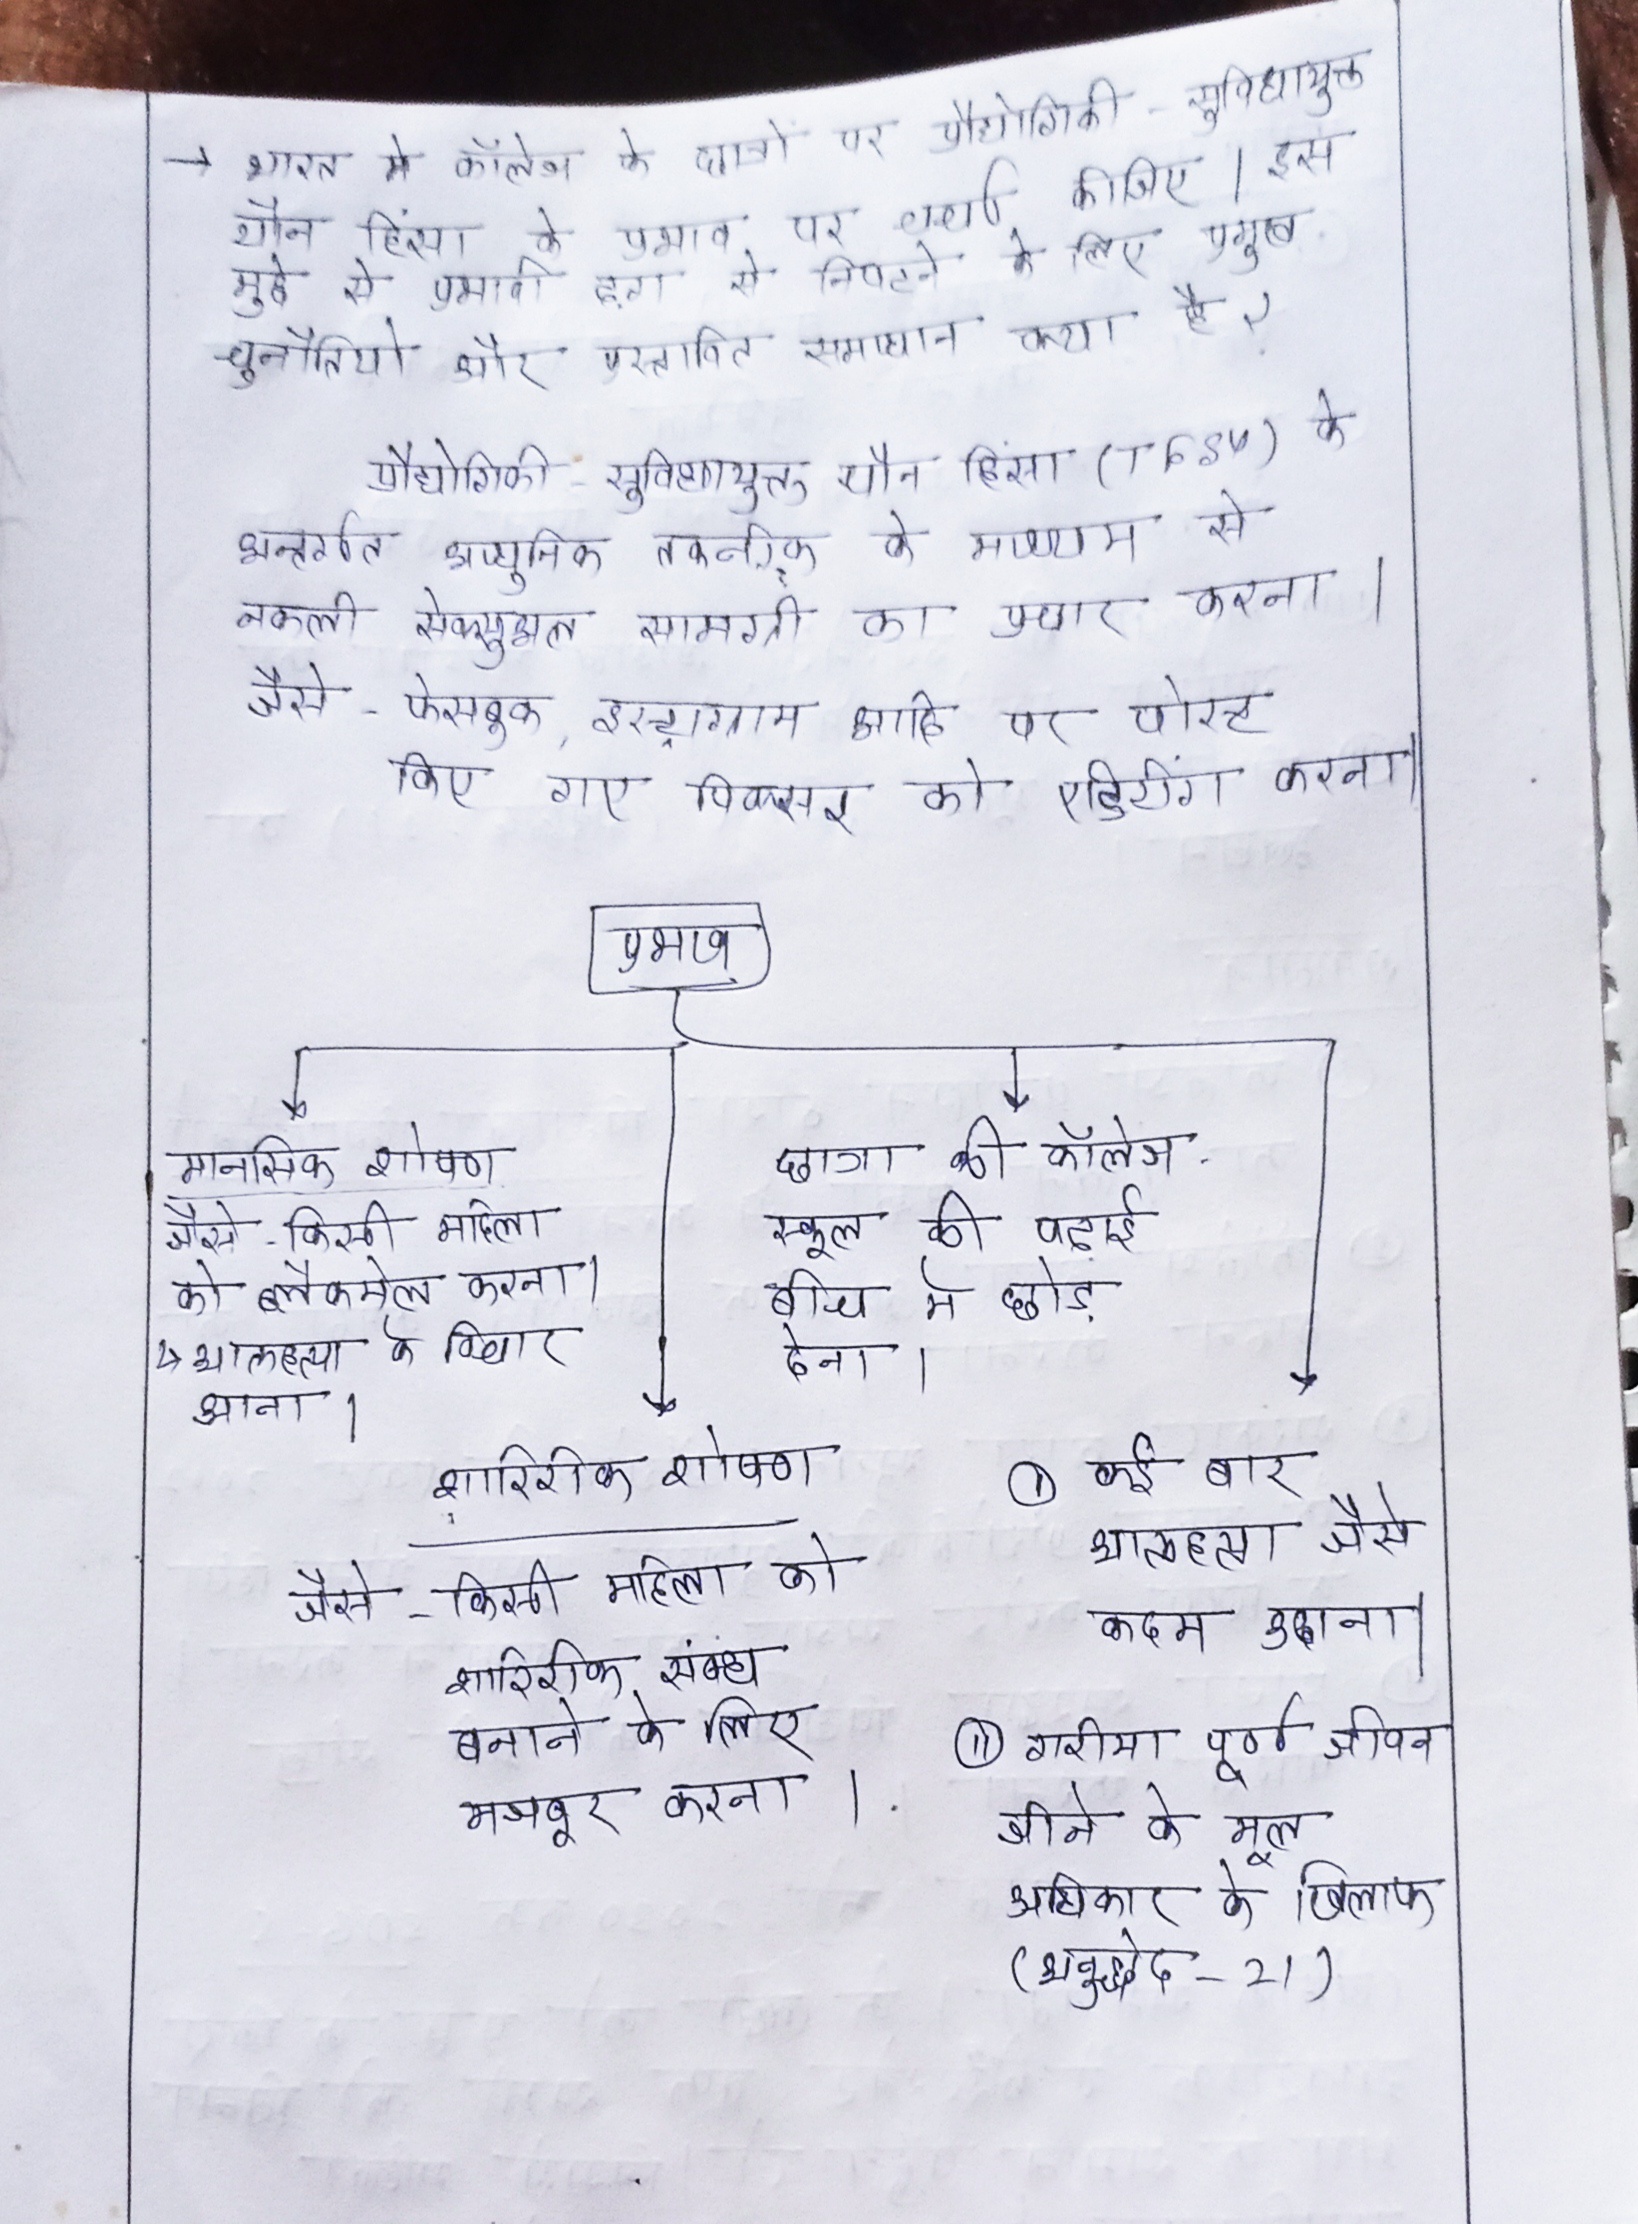 → भारत मे कॉलेज के छात्रों पर प्रौद्योगिकी - सुविधायुक्त
यौन हिंसा के प्रभाव पर चर्चा कीजिए । इस
मुद्दे से प्रभावी ढ़ंग से निपटने के लिए प्रमुख
चुनौतियो और प्रस्तावित समाधान क्या है ?
प्रौद्योगिकी - सुविधायुक्त यौन हिंसा (TFSV) के
अन्तर्गत आधुनिक तकनीक के माध्यम से
नकली सेक्सुअल सामग्री का प्रचार करना ।
जैसे - फेसबुक, इस्ट्राग्राम आदि पर पोस्ट
किए गए पिक्सर को एडिटींग करना।
प्रभाव
मानसिक शोषण
जैसे - किसी महिला
को ब्लैकमेल करना।
↳ आत्महत्या के विचार
आना ।
छात्रा की कॉलेज -
स्कूल की पढ़ाई
बीच मे छोड़
देना ।
शारिरीक शोषण
जैसे - किसी महिला को
शारिरीक संबंध
बनाने के लिए
मजबूर करना ।
① कई बार
आत्महत्या जैसे
कदम उठाना।
② गरीमा पूर्ण जीवन
जीने के मूल
अधिकार के खिलाफ
(अनुच्छेद - 21)